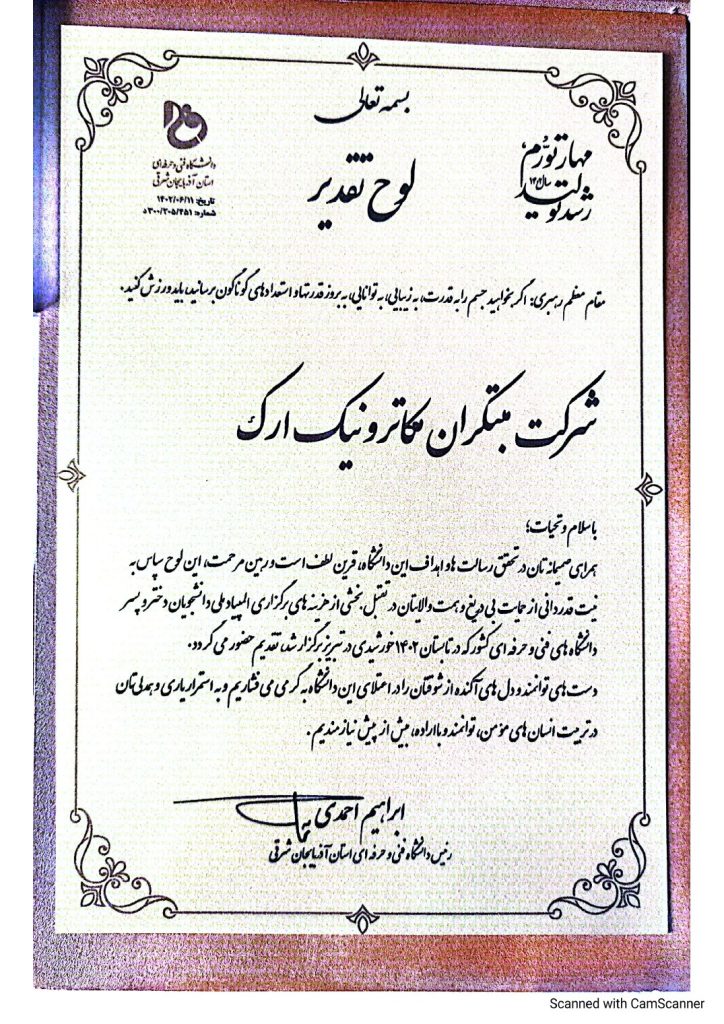 بسمه تعالی
مهار تورم،
رشد تولید
سال ۱۴۰۲
لوح تقدیر
دانشگاه فنی و حرفه‌ای
استان آذربایجان شرقی
تاریخ: ۱۴۰۲/۰۶/۱۱
شماره: ۵۳۰۰/۲۰۵/۴۵۱
مقام معظم رهبری: اگر بخواهید جسم را به قدرت، به زیبایی، به توانایی، به بروز قدرتها و استعدادهای گوناگون برسانید، باید ورزش کنید.
شرکت مبتکران مکاترونیک ارک
با سلام و تحیات؛
همرای صمیمانه تان در تحقق رسالت ها و اهداف این دانشگاه، قرین لطف است و رهین مرحمت، این لوح سپاس به
نیت قدردانی از حمایت بی دریغ و همت والایتان در تقبل بخشی از هزینه های برگزاری المپیاد ملی دانشجویان دختر و پسر
دانشگاه های فنی و حرفه ای کشور که در تابستان ۱۴۰۲ خورشیدی در تبریز برگزار شد، تقدیم حضور می گردد.
دست های توانمند و دل های آکنده از شوقتان را در اعتلای این دانشگاه به گرمی می فشاریم و به استمرار یاری و همدلی تان
در تربیت انسان های مؤمن، توانمند و با اراده، بیش از پیش نیازمندیم.
ابراهیم احمدی
رئیس دانشگاه فنی و حرفه ای استان آذربایجان شرقی
Scanned with CamScanner